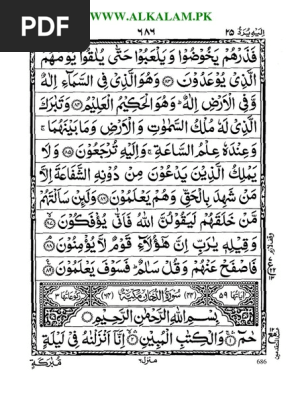 PDF
WWW.ALKALAM.PK
اليه يرد ٢٥
٦٨٦
فَذَرْهُمْ يَخُوْضُوْا وَيَلْعَبُوْا حَتّٰى يُلٰقُوْا يَوْمَهُمُ
الَّذِىْ يُوْعَدُوْنَ ﴿٨٣﴾ وَهُوَ الَّذِىْ فِى السَّمَآءِ اِلٰهٌ
وَّفِى الْاَرْضِ اِلٰهٌ ؕ وَهُوَ الْحَكِيْمُ الْعَلِيْمُ ﴿٨٤﴾ وَتَبٰرَكَ
الَّذِىْ لَهٗ مُلْكُ السَّمٰوٰتِ وَالْاَرْضِ وَمَا بَيْنَهُمَا ۚ
وَعِنْدَهٗ عِلْمُ السَّاعَةِ ۚ وَاِلَيْهِ تُرْجَعُوْنَ ﴿٨٥﴾ وَلَا
يَمْلِكُ الَّذِيْنَ يَدْعُوْنَ مِنْ دُوْنِهِ الشَّفَاعَةَ اِلَّا
مَنْ شَهِدَ بِالْحَقِّ وَهُمْ يَعْلَمُوْنَ ﴿٨٦﴾ وَلَئِنْ سَاَلْتَهُمْ
مَّنْ خَلَقَهُمْ لَيَقُوْلُنَّ اللّٰهُ فَاَنّٰى يُؤْفَكُوْنَ ﴿٨٧﴾
وَقِيْلِهٖ يٰرَبِّ اِنَّ هٰٓؤُلَآءِ قَوْمٌ لَّا يُؤْمِنُوْنَ ﴿٨٨﴾
فَاصْفَحْ عَنْهُمْ وَقُلْ سَلٰمٌ ؕ فَسَوْفَ يَعْلَمُوْنَ ﴿٨٩﴾
اٰيَاتُهَا ٥٩ (٤٤) سُوْرَةُ الدُّخَانِ مَكِّيَّةٌ (٦٤) رُكُوْعَاتُهَا ٣
بِسْمِ اللّٰهِ الرَّحْمٰنِ الرَّحِيْمِ
حٰمٓ ﴿١﴾ وَالْكِتٰبِ الْمُبِيْنِ ﴿٢﴾ اِنَّآ اَنْزَلْنٰهُ فِىْ لَيْلَةٍ
مُّبٰرَكَةٍ
منزل ٦
686